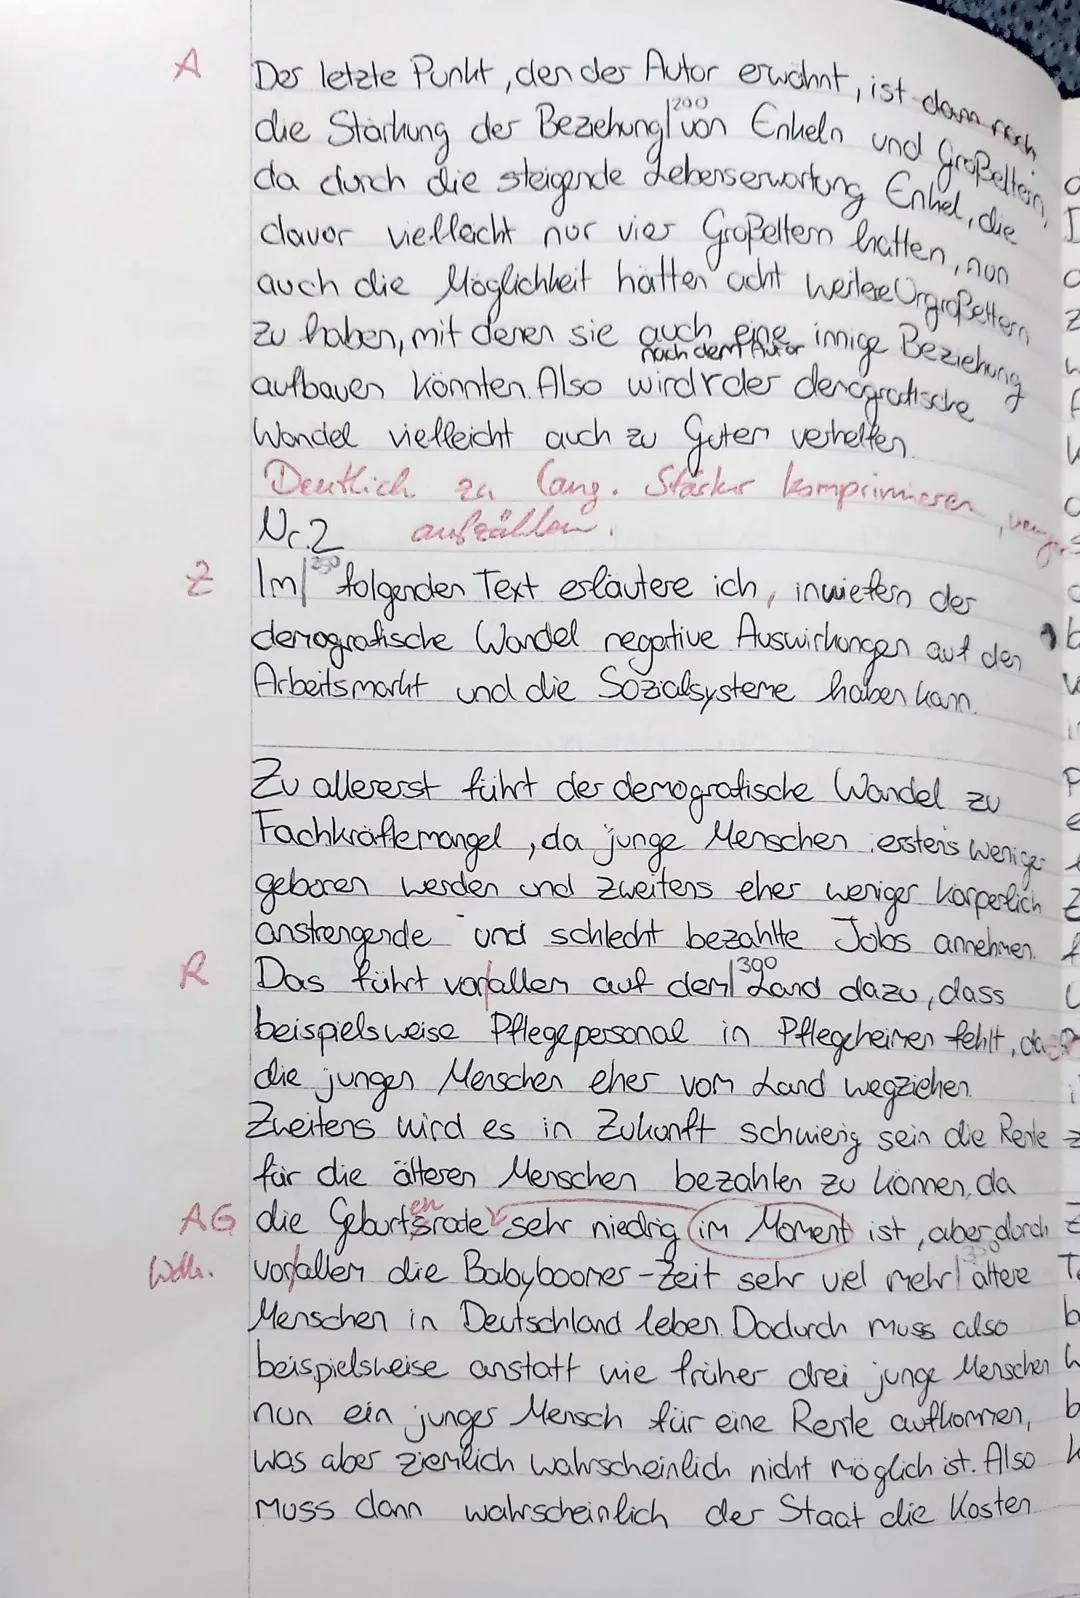 A Der letzte Punkt, den der Autor erwähnt, ist dann noch
die Stärkung der Beziehung |200 von Enkeln und Großeltern,
da durch die steigende Lebenserwartung Enkel, die
davor vielleicht nur vier Großeltern hatten, nun
auch die Möglichkeit hätten acht weitere Urgroßeltern
zu haben, mit denen sie auch eine innige Beziehung
nach dem Autor
aufbauen könnten. Also wird der demografische
Wandel vielleicht auch zu Gutem verhelfen.
Deutlich zu lang. Stärker komprimieren, weniger
aufzählen.
Nr. 2
Z Im |250 folgenden Text erläutere ich, inwiefern der
demografische Wandel negative Auswirkungen auf den
Arbeitsmarkt und die Sozialsysteme haben kann.
Zu allererst führt der demografische Wandel zu
Fachkräftemangel, da junge Menschen erstens weniger
geboren werden und zweitens eher weniger körperlich
anstrengende und schlecht bezahlte Jobs annehmen.
R Das führt vorallem auf dem |300 Land dazu, dass
beispielsweise Pflegepersonal in Pflegeheimen fehlt, da
die jungen Menschen eher vom Land wegziehen.
Zweitens wird es in Zukunft schwierig sein die Rente
für die älteren Menschen bezahlen zu können, da
en
AG die Geburtsrate sehr niedrig im Moment ist, aber durch
Wdh. vorallem die Babyboomer-Zeit sehr viel mehr |350 ältere
Menschen in Deutschland leben. Dadurch muss also
beispielsweise anstatt wie früher drei junge Menschen
nun ein junger Mensch für eine Rente aufkommen,
was aber ziemlich wahrscheinlich nicht möglich ist. Also
muss dann wahrscheinlich der Staat die Kosten